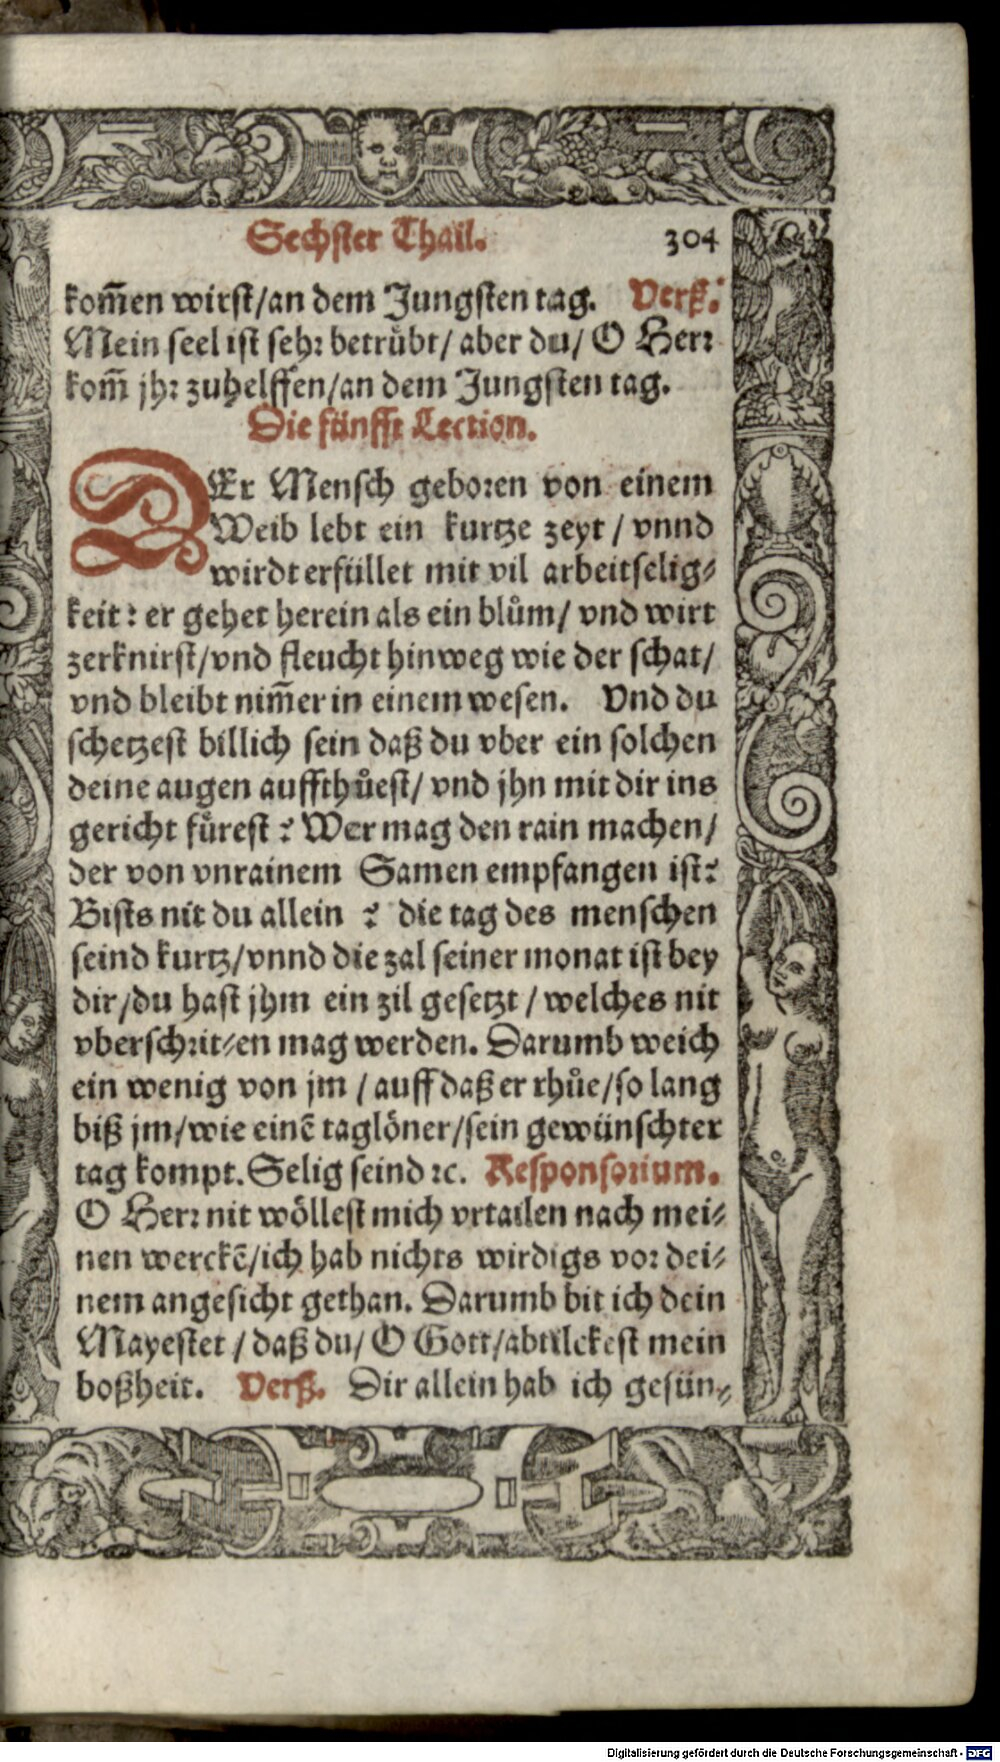 Sechster Thail. 304
kom̃en wirst/an dem Jungsten tag. Verß.
Mein seel ist sehr betruͤbt/ aber du/ O Herr
kom̃ jhr zuhelffen/an dem Jungsten tag.
Die fünfft Lection.
DEr Mensch geboren von einem
Weib lebt ein kurtze zeyt / vnnd
wirdt erfüllet mit vil arbeitselig⸗
keit: er gehet herein als ein bluͦm/ vnd wirt
zerknirst/vnd fleucht hinweg wie der schat/
vnd bleibt nim̃er in einem wesen. Vnd du
schetzest billich sein daß du vber ein solchen
deine augen auffthuͦest/ vnd jhn mit dir ins
gericht fuͤrest? Wer mag den rain machen/
der von vnrainem Samen empfangen ist?
Bists nit du allein ? die tag des menschen
seind kurtz/vnnd die zal seiner monat ist bey
dir/du hast jhm ein zil gesetzt / welches nit
vberschrit⸗en mag werden. Darumb weich
ein wenig von jm / auff daß er rhuͦe/so lang
biß jm/wie einē taglöner/sein gewünschter
tag kompt. Selig seind ꝛc. Responsorium.
O Herr nit wöllest mich vrtailen nach mei⸗
nen werckē/ich hab nichts wirdigs vor dei⸗
nem angesicht gethan. Darumb bit ich dein
Mayestet / daß du/ O Gott/abtilckest mein
boßheit. Verß. Dir allein hab ich gesün⸗
Digitalisierung gefördert durch die Deutsche Forschungsgemeinschaft - DFG